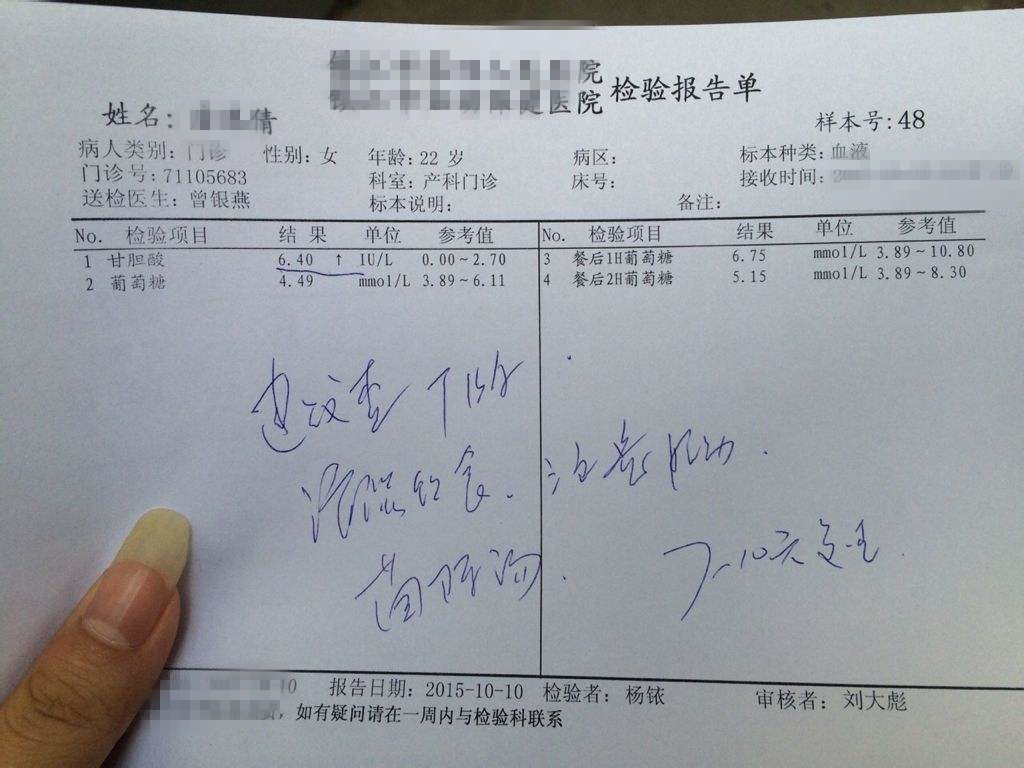 院
医院 检验报告单
姓名: 倩 样本号:48
病人类别:门诊 性别:女 年龄:22 岁 病区: 标本种类:血液
门诊号:71105683 科室:产科门诊 床号: 接收时间:
送检医生:曾银燕 标本说明: 备注:
No. 检验项目 结 果 单位 参考值 No. 检验项目 结果 单位 参考值
1 甘胆酸 6.40 ↑ IU/L 0.00~2.70 3 餐后1H葡萄糖 6.75 mmol/L 3.89~10.80
2 葡萄糖 4.49 mmol/L 3.89~6.11 4 餐后2H葡萄糖 5.15 mmol/L 3.89~8.30
建议查
清淡饮食. 注意胎动.
茵陈汤. 7-10天复查.
10 报告日期:2015-10-10 检验者:杨铱 审核者:刘大彪
,如有疑问请在一周内与检验科联系